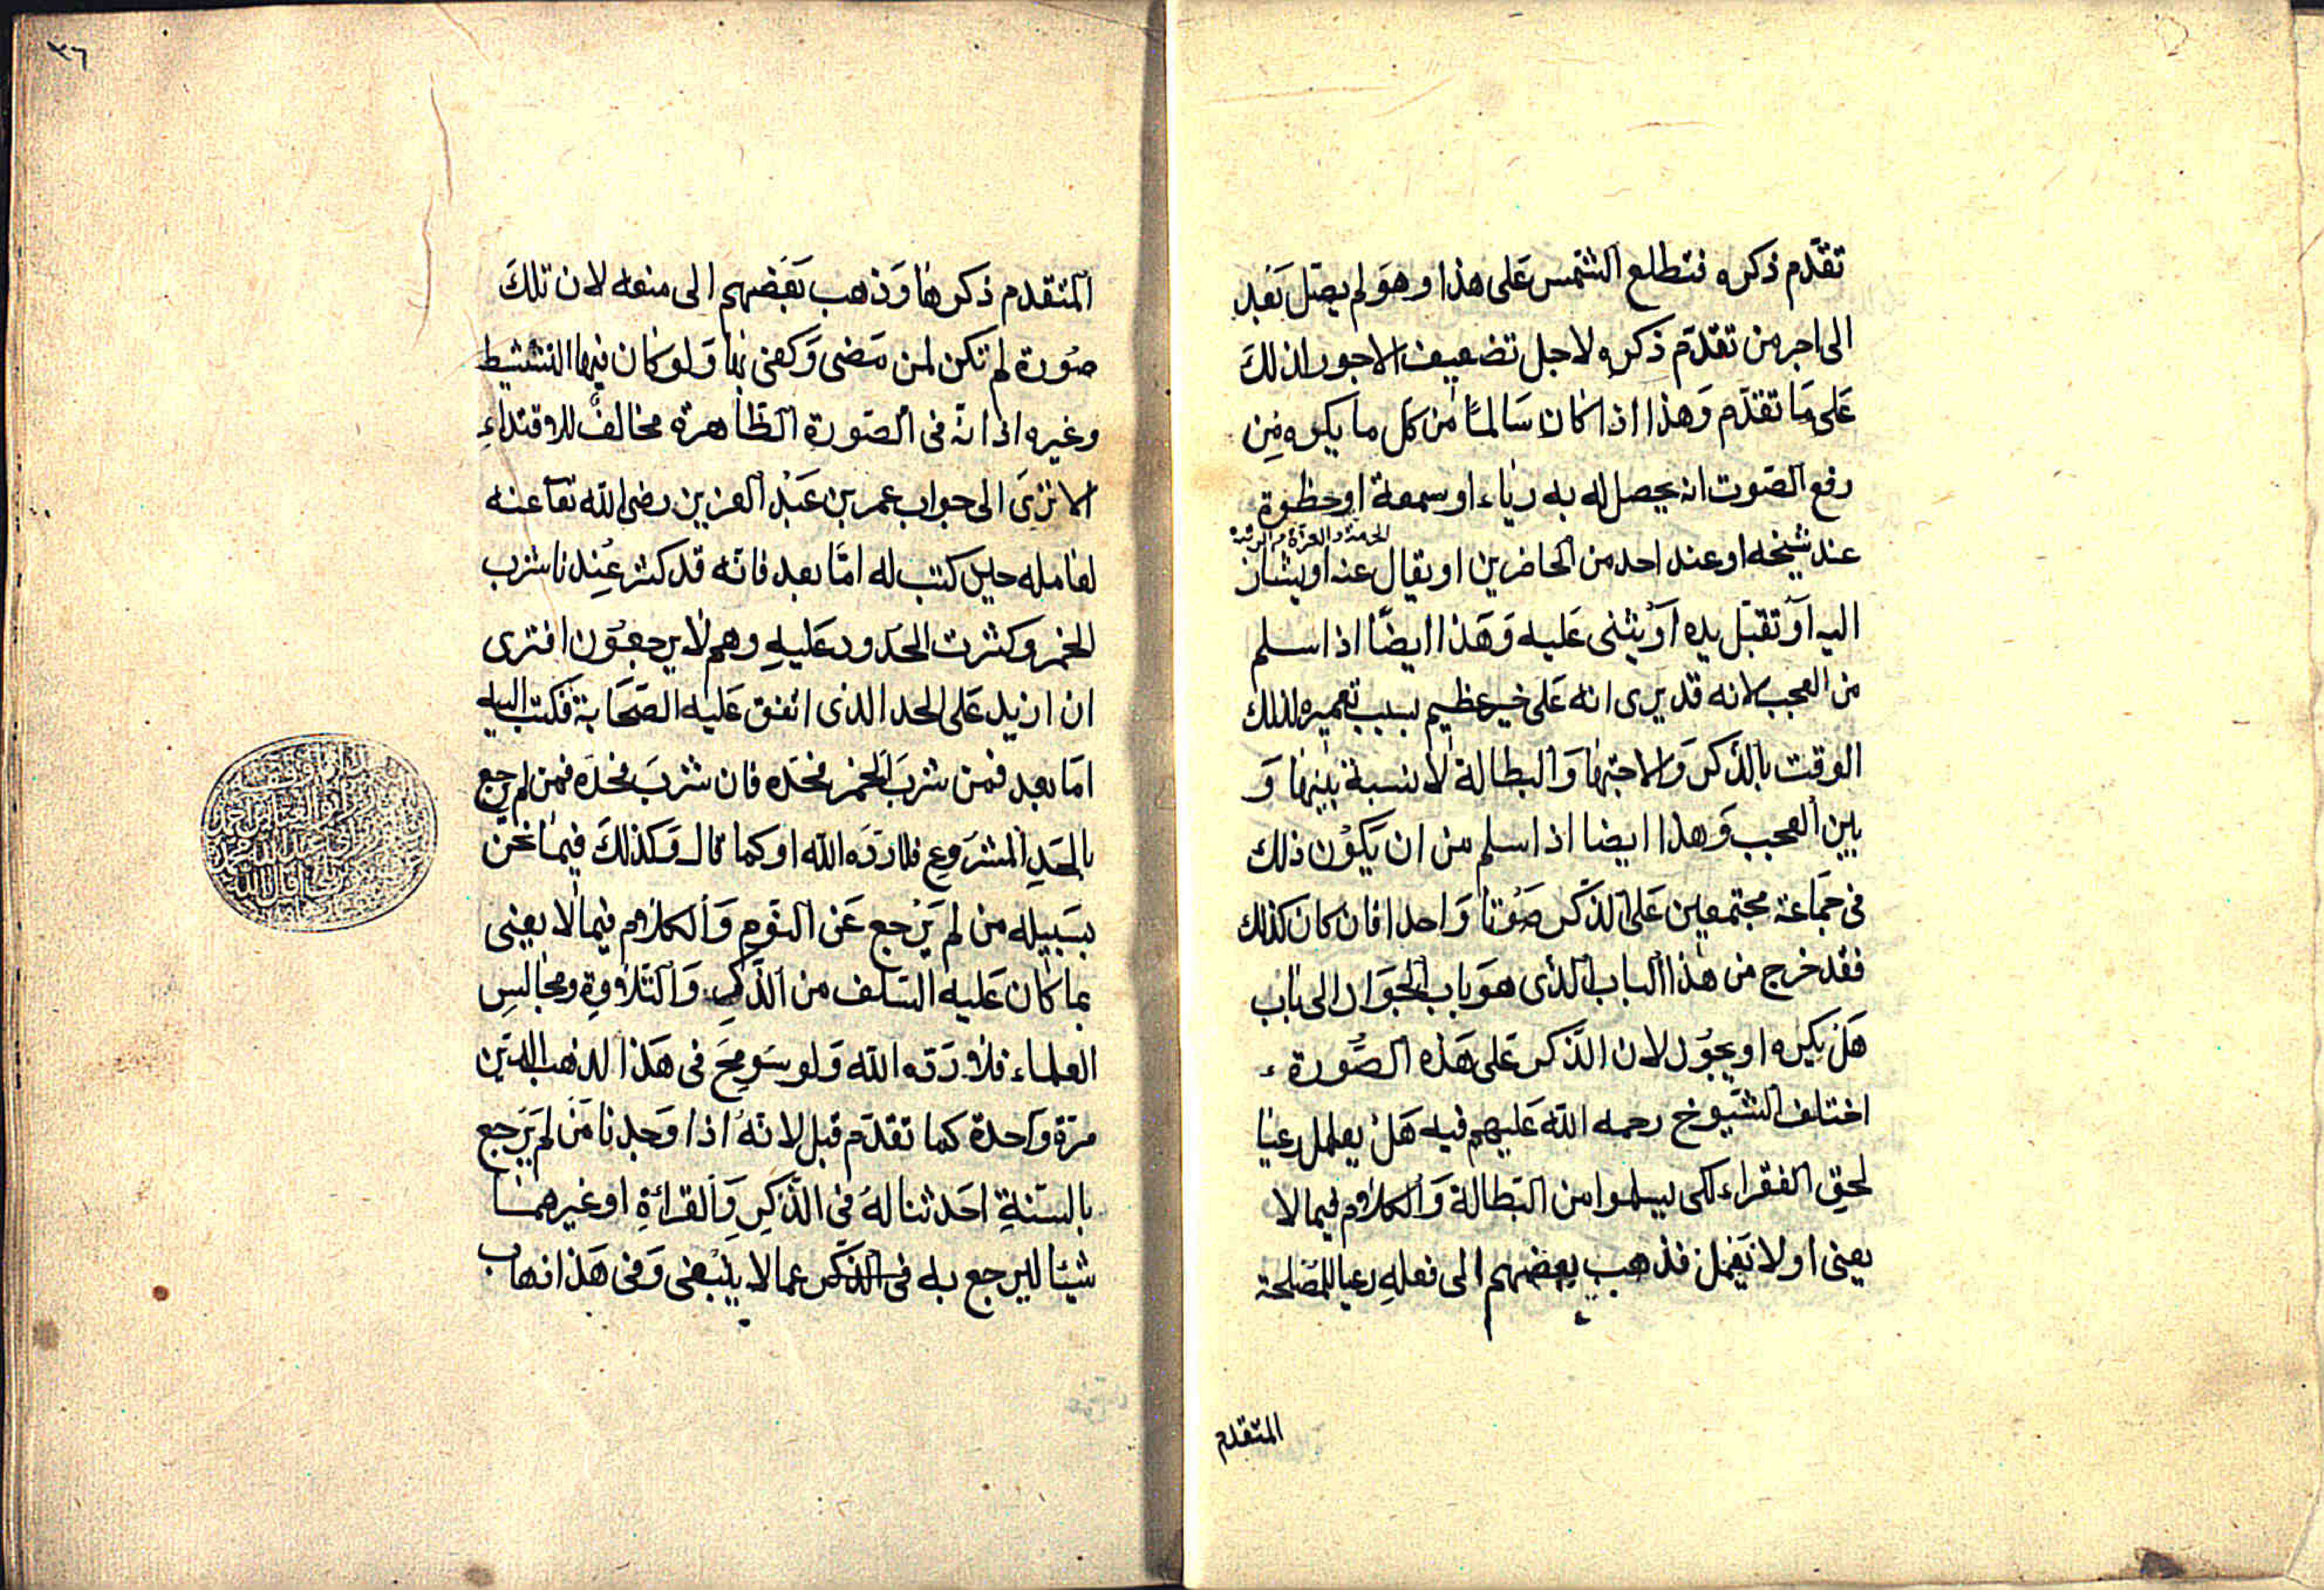 تقدّم ذكره فتطلع الشمس على هذا وهو لم يصل بعد
الى اجر من تقدّم ذكره لاجل تضعيف الاجور اذ ذلك
على ما تقدّم وهذا اذا كان سالما من كل ما يكره من
رفع الصّوت ان يحصل له به رياء او سمعة او حظوة
الحرمة والعزة م
عند شيخه او عند احد من الحاضرين او يقال عنه او يشار
اليه او تقبل يده او يثنى عليه وهذا ايضا اذا سلم
من العجب لانه قد يرى انه على خير عظيم بسبب تعميره لذلك
الوقت بالذكر والاجتهاد والبطالة لا نسبة بينها و
بين العجب وهذا ايضا اذا سلم من ان يكون ذلك
فى جماعة مجتمعين على الذكر صوتا واحدا فان كان كذلك
فقد خرج من هذا الباب الذى هو باب الجواز الى باب
هل يكره او يجوز لان الذكر على هذه الصورة
اختلف الشيوخ رحمه الله عليهم فيه هل يعمل رعيا
لحق الفقراء لكى يسلموا من البطالة والكلام فيما لا
يعنى او لا يفعل فذهب بعضهم الى فعله رعيا للمصلحة
المتقدم
٣٦
المتقدم ذكرها وذهب بعضهم الى منعه لان تلك
صورة لم تكن لمن مضى وكفى بها ولو كان فيها التنشيط
وغيره اذ انّه فى الصورة الظاهرة مخالف للاقتداء
الا ترى الى جواب عمر بن عبد العزيز رضى الله تعا عنه
لعامله حين كتب له امّا بعد فانّه قد كثر عندنا شرب
الخمر وكثرت الحدود عليه وهم لا يرجعون افترى
ان ازيد على الحد الذى اتفق عليه الصحابة فكتب اليه
امّا بعد فمن شرب الخمر فحده فان شرب فحده فمن لم يرجع
بالحد المشروع فلا ردّه الله او كما قال وكذلك فيما نحن
بسبيله من لم يرجع عن النوم والكلام فيما لا يعنى
بما كان عليه السلف من الذكر والتلاوة ومجالس
العلماء فلا ردّه الله ولو سومح فى هذا لذهب الدين
مرّة واحدة كما تقدّم قبل لانّه اذا وجدنا من لم يرجع
بالسّنة احدثنا له فى الذكر والقراءة او غيرهما
شيئا ليرجع به فى الذكر عما لا ينبغى وفى هذا ذهاب